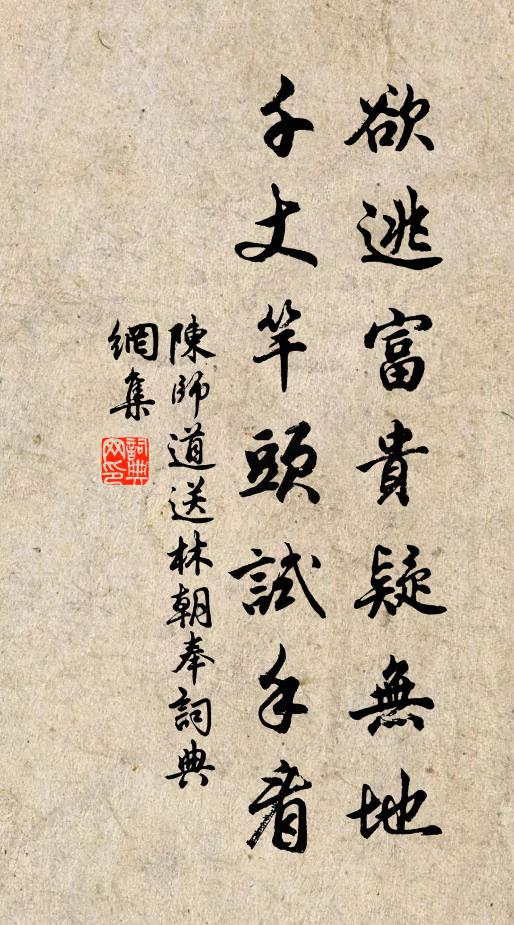 欲逃富貴疑無地
千丈竿頭試手看
陳師道送林朝奉詞典
網集
詞典
网印